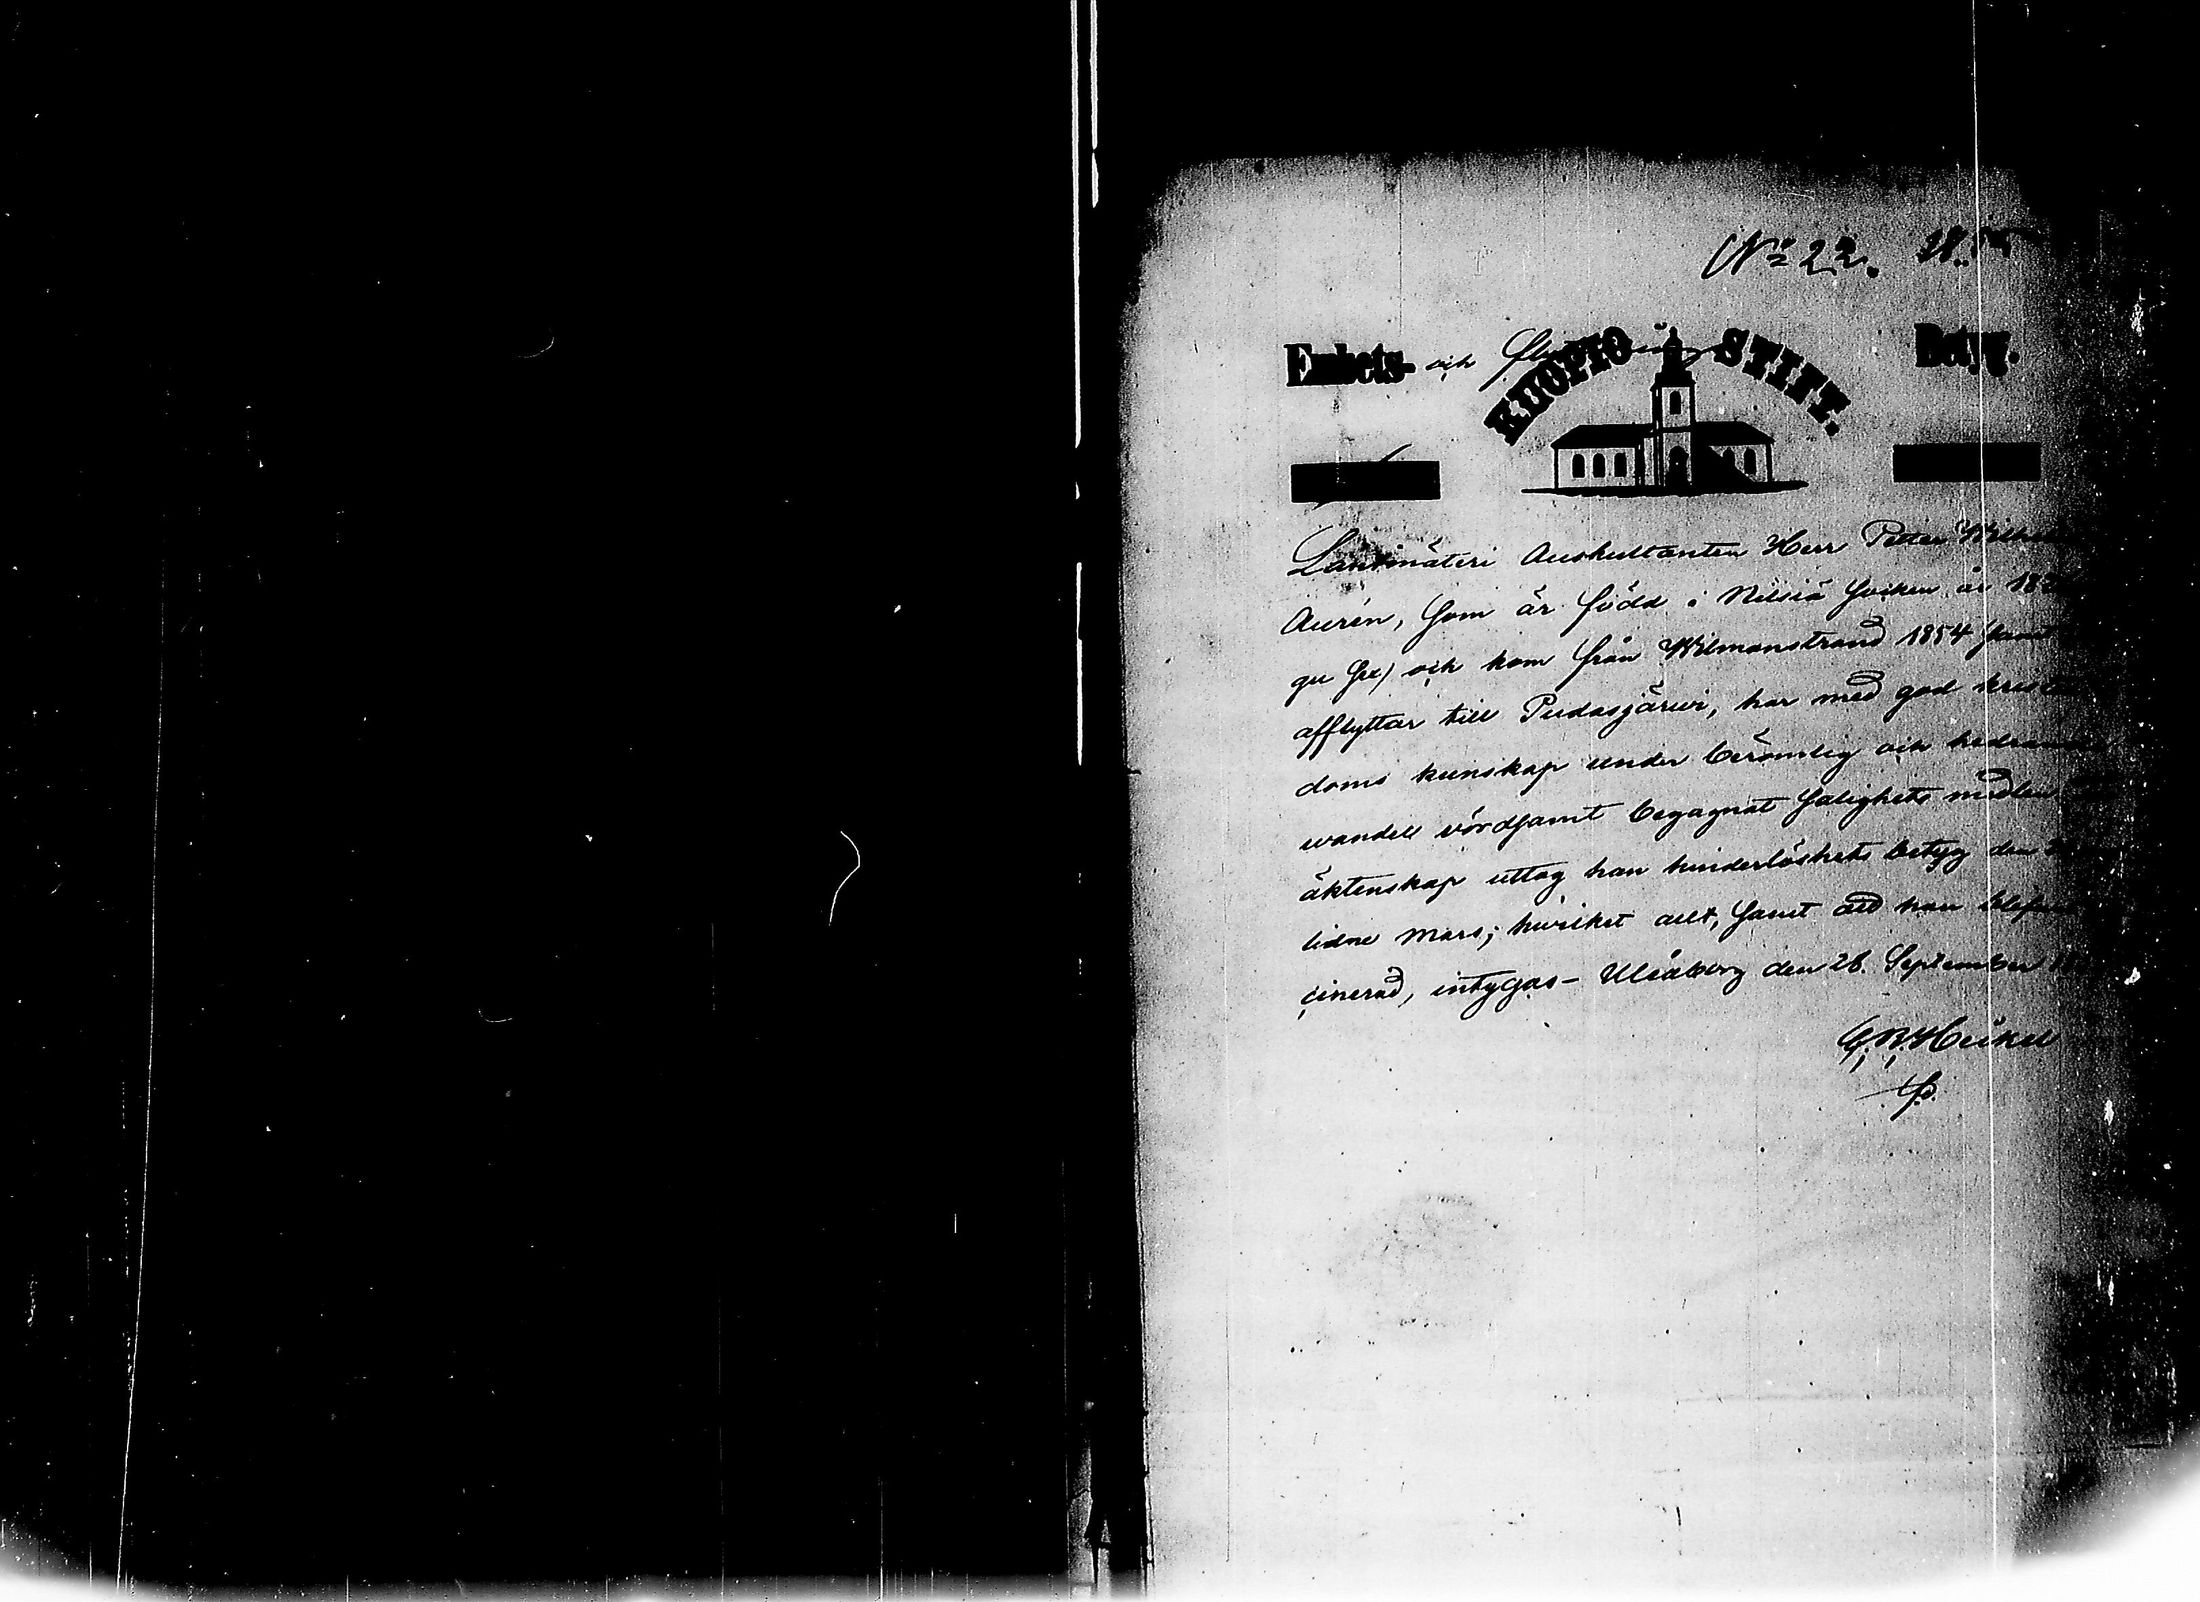 No 22.
Embets- och Betyg.
KUOPIO STIFT.
Landtmäteri Auskultanten Herr Petter Wilhelm
Aurén, som är född i Nilsiä Socken år 18
gu sex) och kom från Wilmanstrand 1854 samt
afflyttar till Pudasjärwi, har med god kristen
doms kunskap under berömlig och hedrande
wandel vördsamt begagnat salighets medlen
äktenskap uttog han hinderlöshets betyg den
lidne Mars; hwilket allt, samt att han blifwit
cinerad, intygas – Uleåborg den 28. September
Heikel